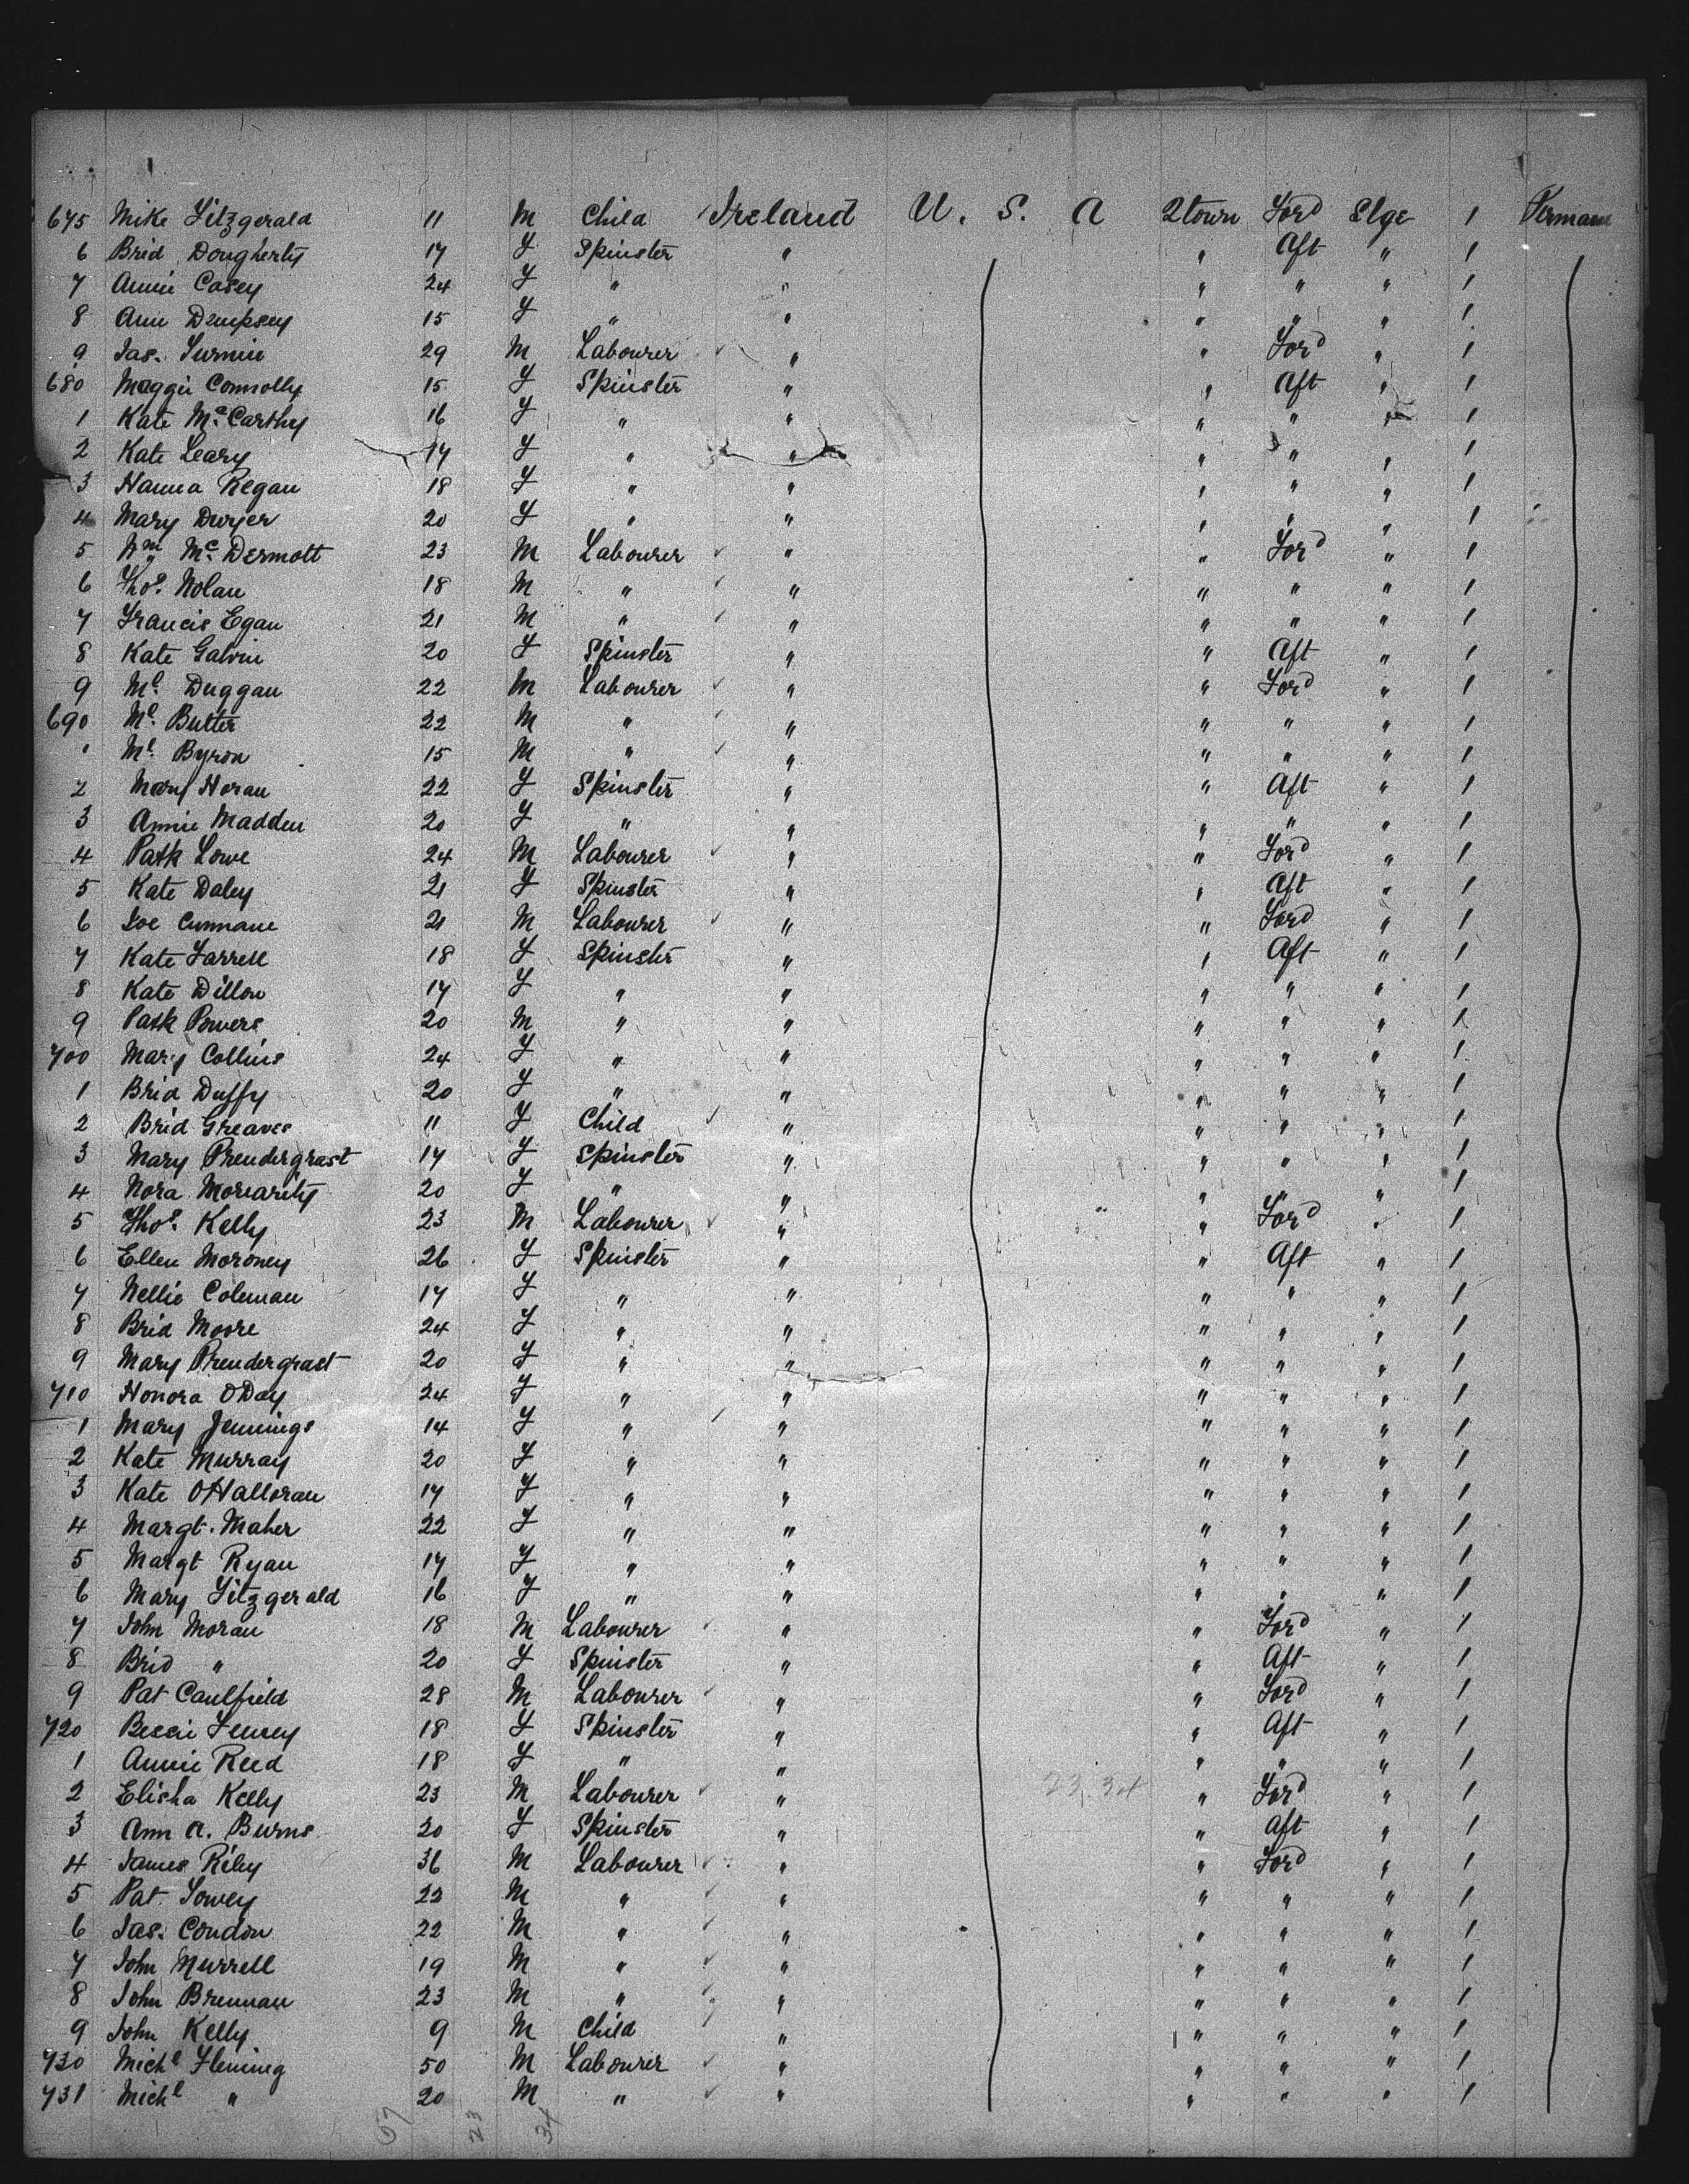 675 Mike Fitzgerald 11 M Child Ireland U. S. A 2town Ford Stge 1
6 Brid Dougherty 17 F Spinster " " Aft " 1
7 Annie Casey 24 F " " " " " 1
8 Ann Dempsey 15 F " " " " " 1
9 Jas. 29 M Labourer " " Ford " 1
680 Maggie Connolly 15 F Spinster " " Aft " 1
1 Kate McCarthy 16 F " " " " " 1
2 Kate Leary 17 F " " " " " 1
3 Hanna Regan 18 F " " " " " 1
4 Mary Dwyer 20 F " " " " " 1
5 Wm McDermott 23 M Labourer " " Ford " 1
6 Thos. Nolan 18 M " " " " " 1
7 Francis Egan 21 M " " " " " 1
8 Kate Galvin 20 F Spinster " " Aft " 1
9 Ml. Duggan 22 M Labourer " " Ford " 1
690 Ml. Butler 22 M " " " " " 1
1 Ml. Byron 15 M " " " " " 1
2 Mary Horan 22 F Spinster " " Aft " 1
3 Annie Madden 20 F " " " " " 1
4 Patk Lowe 24 M Labourer " " Ford " 1
5 Kate Daley 21 F Spinster " " Aft " 1
6 Joe Cunnane 21 M Labourer " " Ford " 1
7 Kate Farrell 18 F Spinster " " Aft " 1
8 Kate Dillon 17 F " " " " " 1
9 Patk Powers 20 M " " " " " 1
700 Mary Collins 24 F " " " " " 1
1 Brid Duffy 20 F " " " " " 1
2 Brid Greaves 11 F Child " " " " 1
3 Mary Prendergrast 17 F Spinster " " " " 1
4 Nora Moriarity 20 F " " " " " 1
5 Thos. Kelly 23 M Labourer " " Ford " 1
6 Ellen Moroney 26 F Spinster " " Aft " 1
7 Nellie Coleman 17 F " " " " " 1
8 Brid Moore 24 F " " " " " 1
9 Mary Prendergrast 20 F " " " " " 1
710 Honora ODay 24 F " " " " " 1
1 Mary Jennings 14 F " " " " " 1
2 Kate Murray 20 F " " " " " 1
3 Kate OHalloran 17 F " " " " " 1
4 Margt. Maher 22 F " " " " " 1
5 Margt Ryan 17 F " " " " " 1
6 Mary Fitzgerald 16 F " " " " " 1
7 John Moran 18 M Labourer " " Ford " 1
8 Brid " 20 F Spinster " " Aft " 1
9 Pat Caulfield 28 M Labourer " " Ford " 1
720 Bessie 18 F Spinster " " Aft " 1
1 Annie Reed 18 F " " " " " 1
2 Elisha Kelly 23 M Labourer " 23.34 " Ford " 1
3 Ann A. Burns 20 F Spinster " " Aft " 1
4 James Riley 36 M Labourer " " Ford " 1
5 Pat 22 M " " " " " 1
6 Jas. Condon 22 M " " " " " 1
7 John Murrell 19 M " " " " " 1
8 John Brennan 23 M " " " " " 1
9 John Kelly 9 M Child " " " " 1
730 Michl Fleming 50 M Labourer " " " " 1
731 Michl " 20 M " " " " " 1
57 23 34